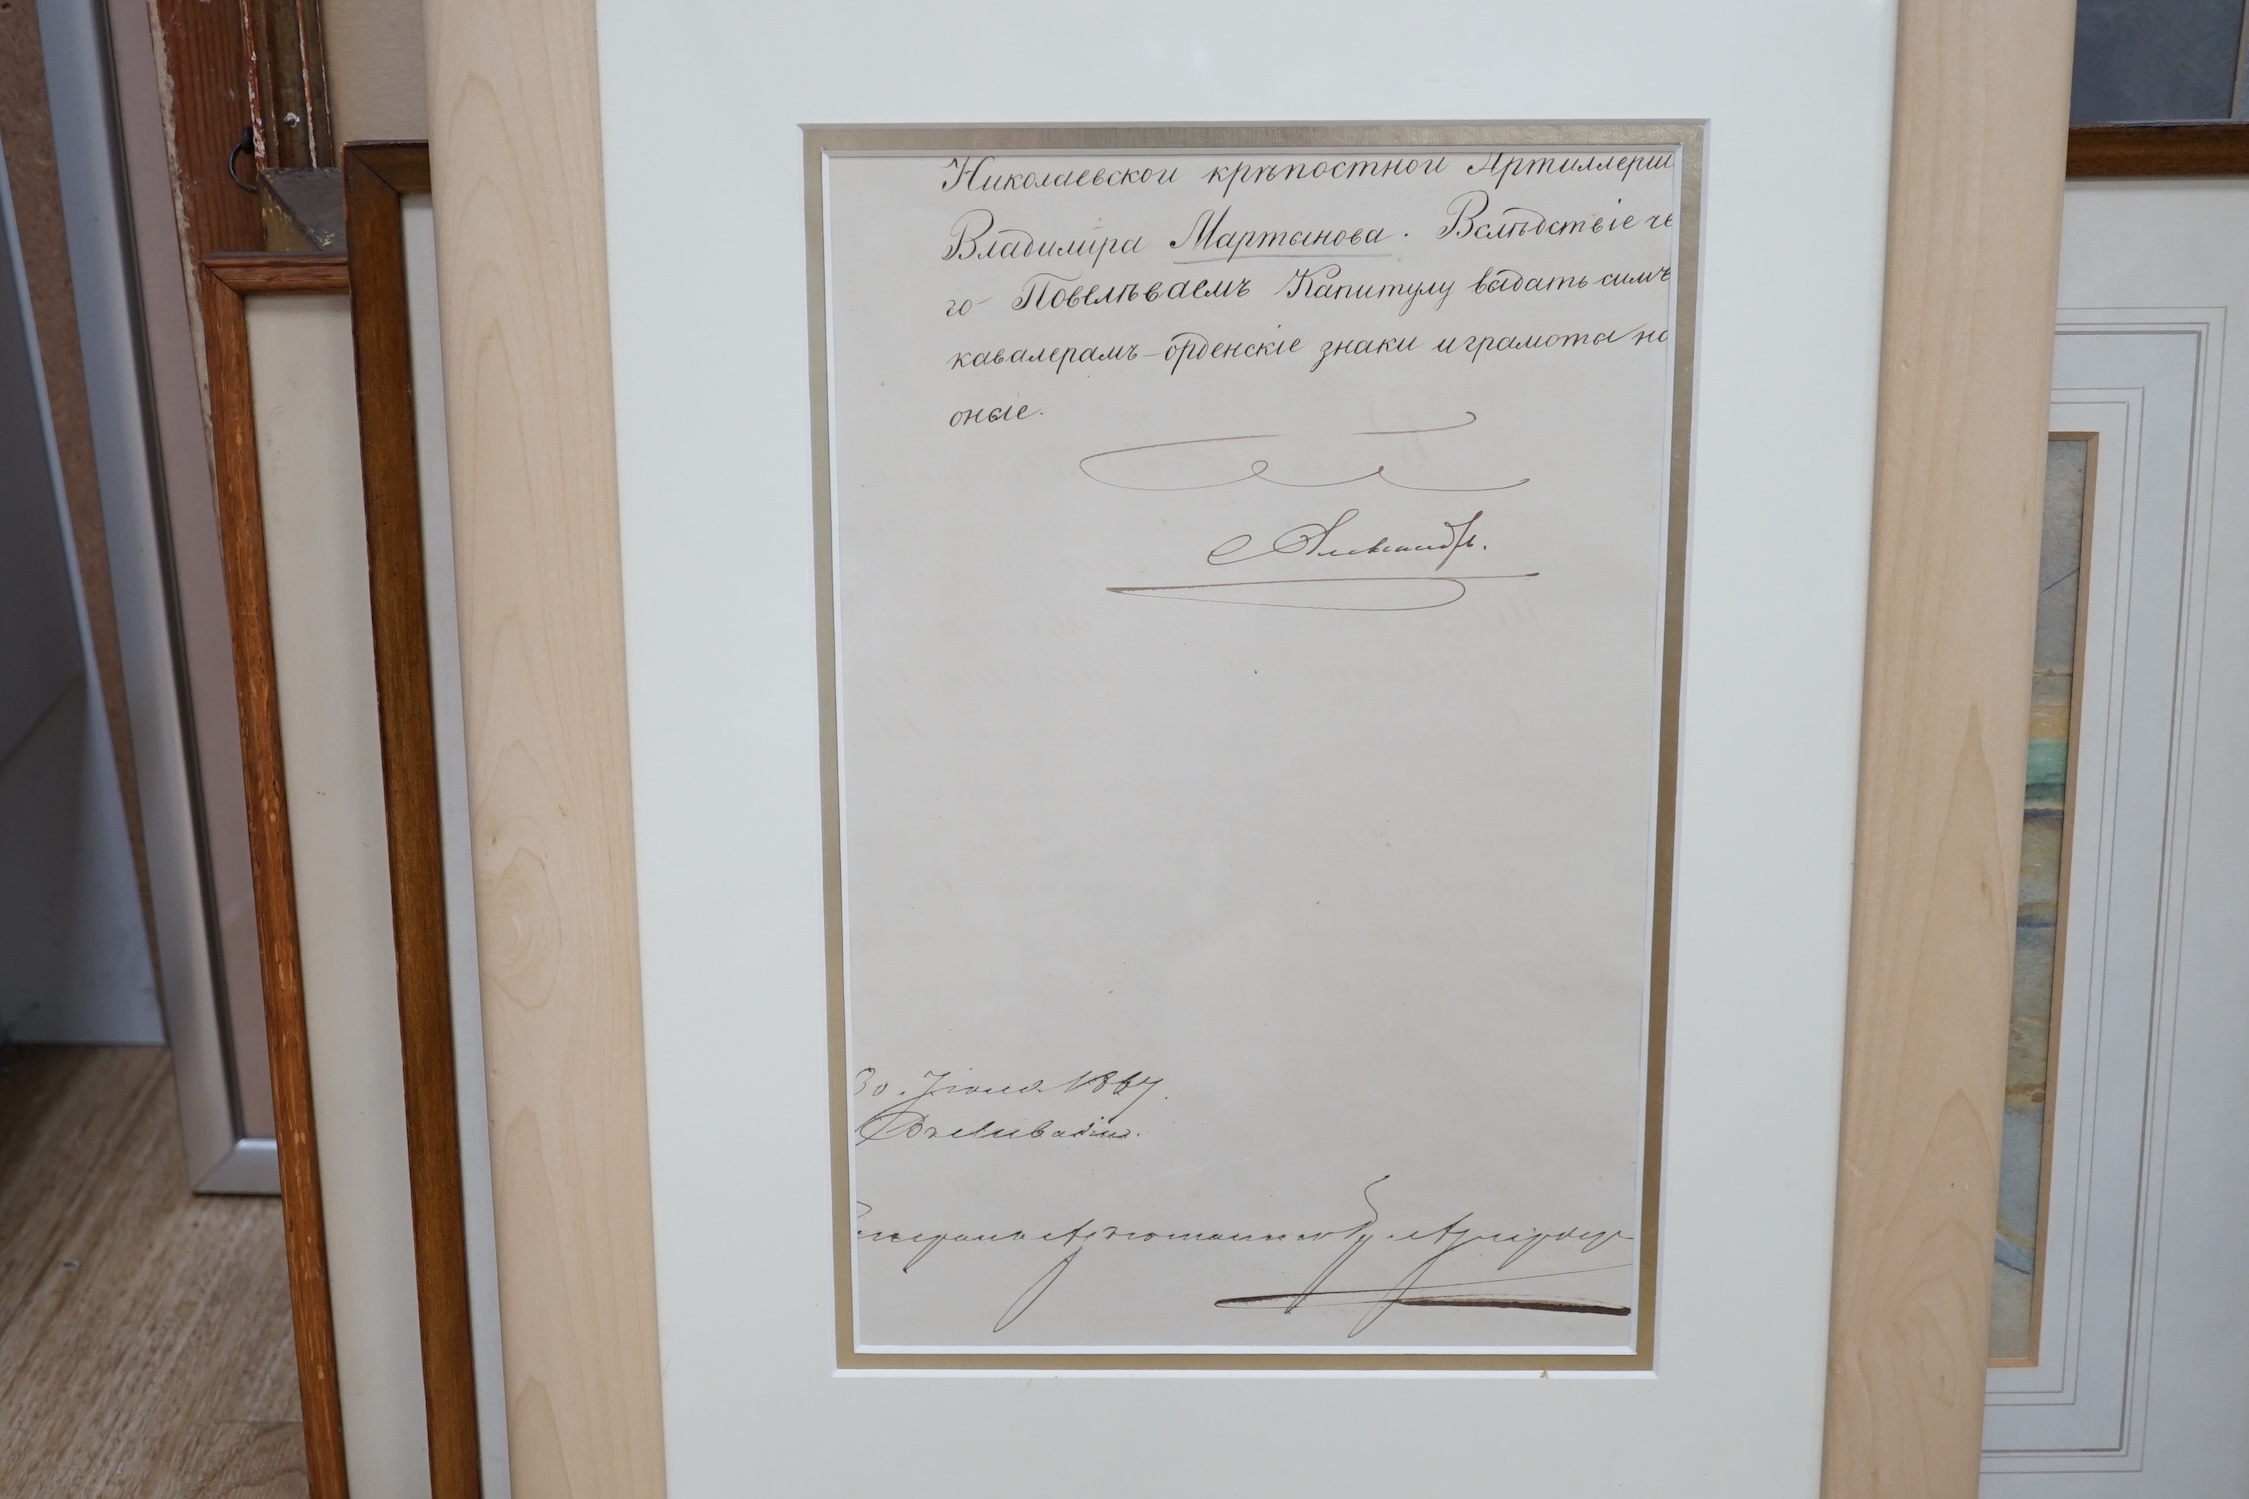 Николаевской крѣпостной Артиллеріи
Владиміра Мартынова. Вслѣдствіе че
го Повелѣваемъ Капитулу выдать симъ
кавалерамъ орденскіе знаки и грамоты на
оные.
Александръ.
30. Іюня 1867.